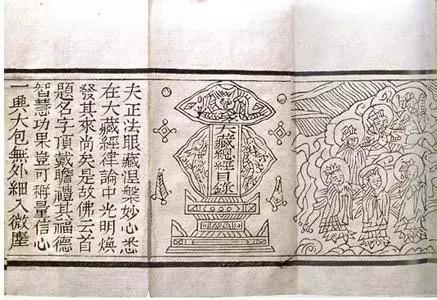 大藏總經目錄
夫正法眼藏涅槃妙心悉
在大藏經律論中光明煥
發其來尚矣是故佛云首
題名字頂戴瞻禮其福德
智慧功果豈可稱量信心
一典大包無外細入微塵